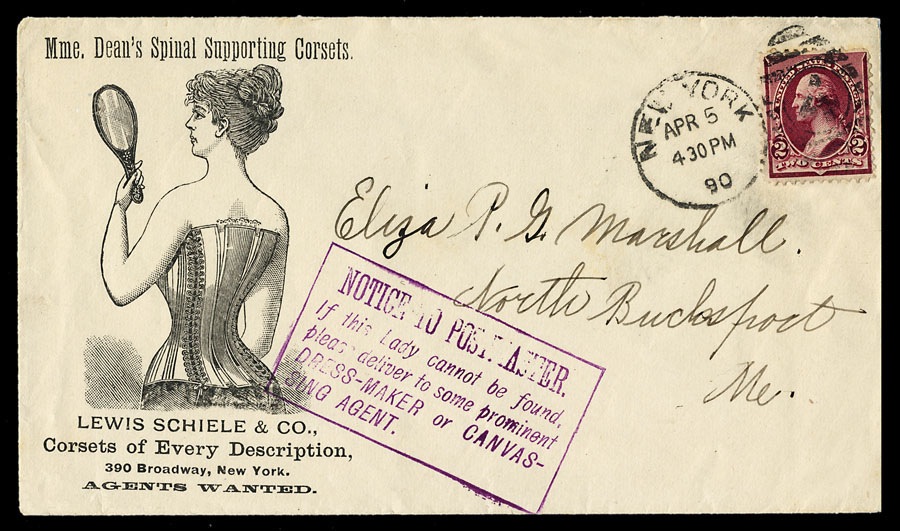 Mme. Dean's Spinal Supporting Corsets.
LEWIS SCHIELE & CO.,
Corsets of Every Description,
390 Broadway, New York.
AGENTS WANTED.
NEW YORK
APR 5
430PM
90
UNITED STATES POSTAGE
2 2
TWO CENTS
Eliza P. G. Marshall.
North Bucksport
Me.
NOTICE TO POSTMASTER.
If this Lady cannot be found,
please deliver to some prominent
DRESS-MAKER or CANVAS-
SING AGENT.